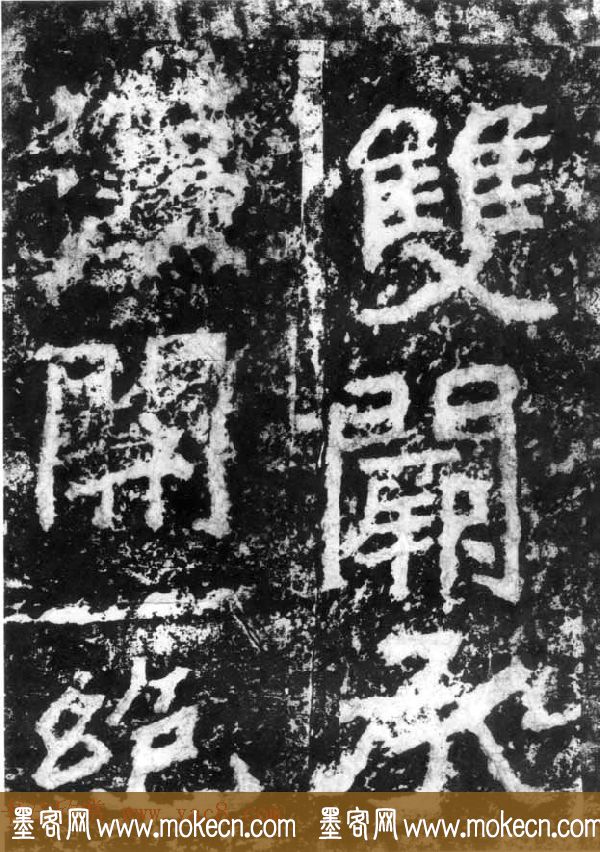 雙闕承
開絶
墨客网 www.mokecn.com 墨客网 www.mokecn.com